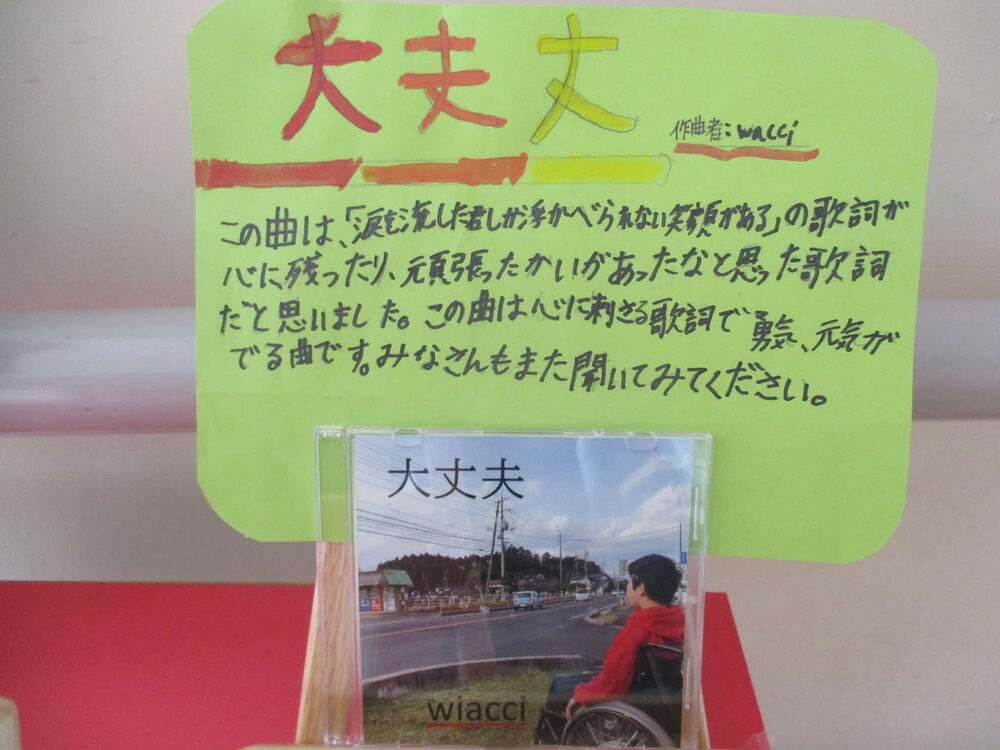 大夫丈
作曲者:wacci
この曲は、「涙を流した君しか浮かべられない笑顔がある」の歌詞が
心に残ったり、頑張ったかいがあったなと思った歌詞
だと思いました。この曲は心に刺さる歌詞で勇気、元気が
でる曲です。みなさんもまた聞いてみてください。
大丈夫
wiacci